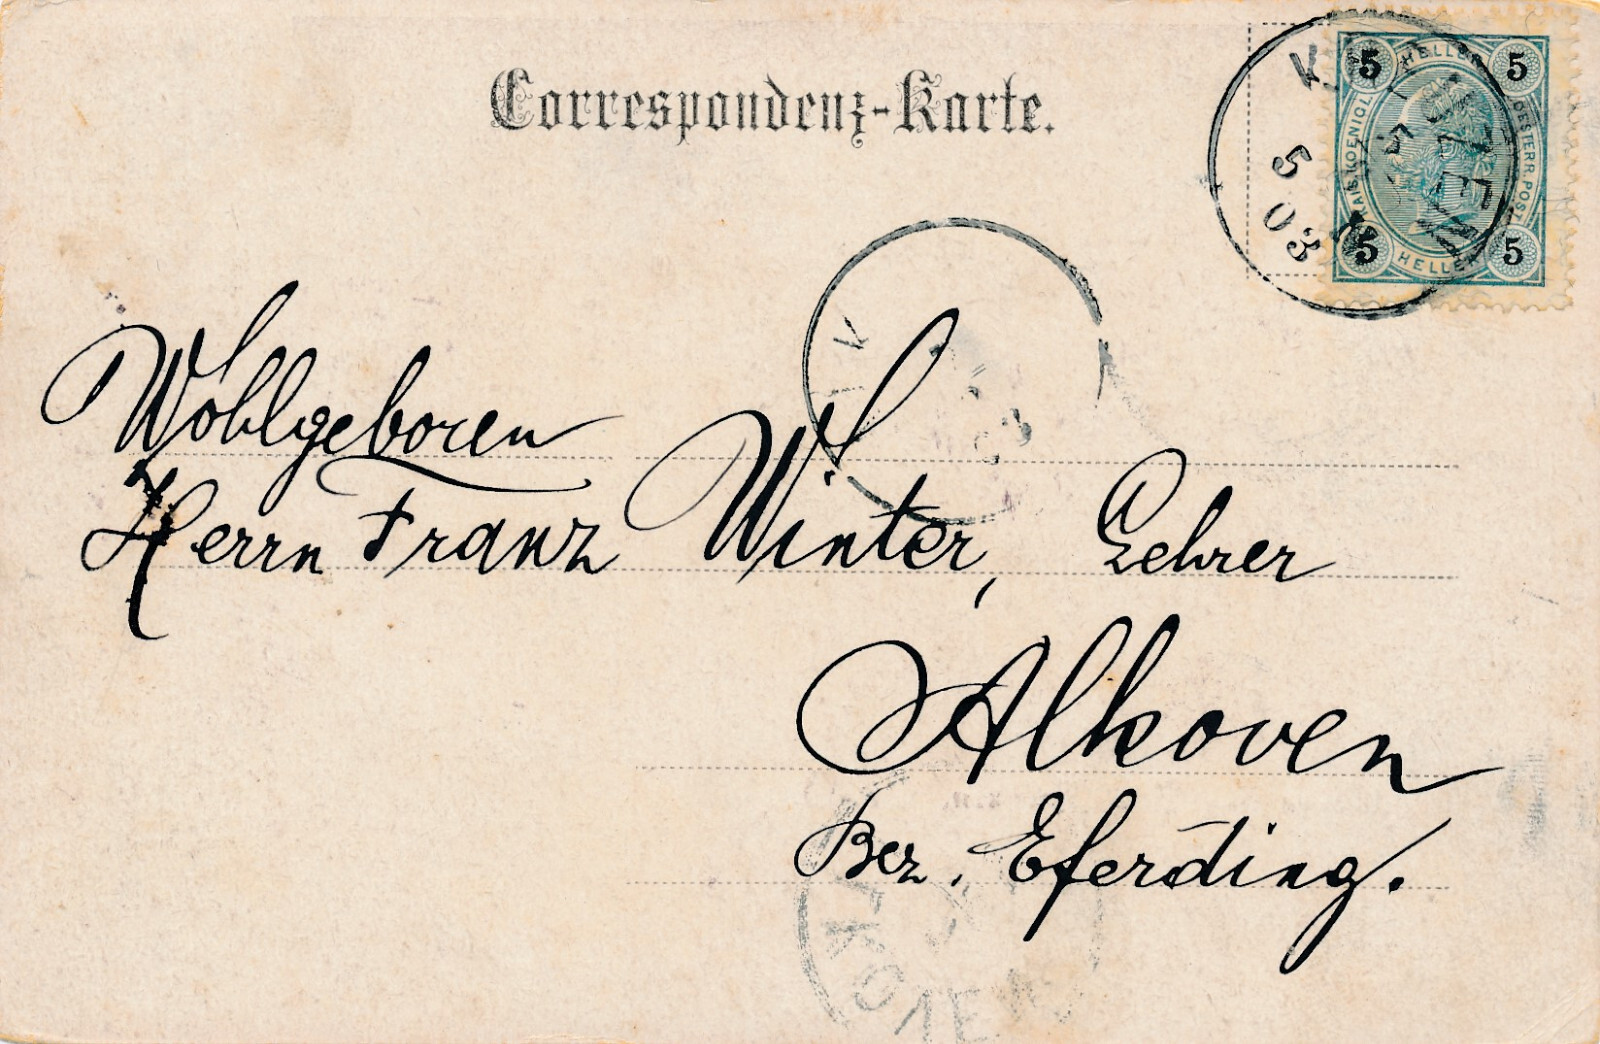 Correspondenz-Karte.
5 HELLER 5
KAIS.KOENIGL. OESTERR.POST
5 HELLER 5
5
03
Wohlgeboren
Herrn Franz Winter, Lehrer
Alkoven
Bez. Eferding.